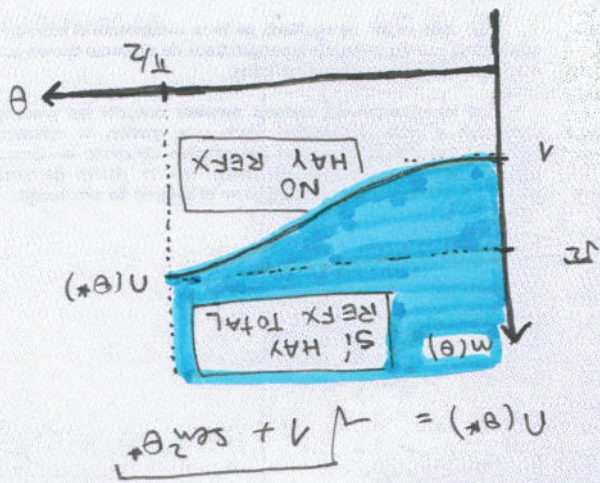 n(θ*) = √(1 + sen²θ*)
n(θ)
SÍ HAY
REFX TOTAL
n(θ*)
√2
NO
HAY REFX
1
π/2
θ